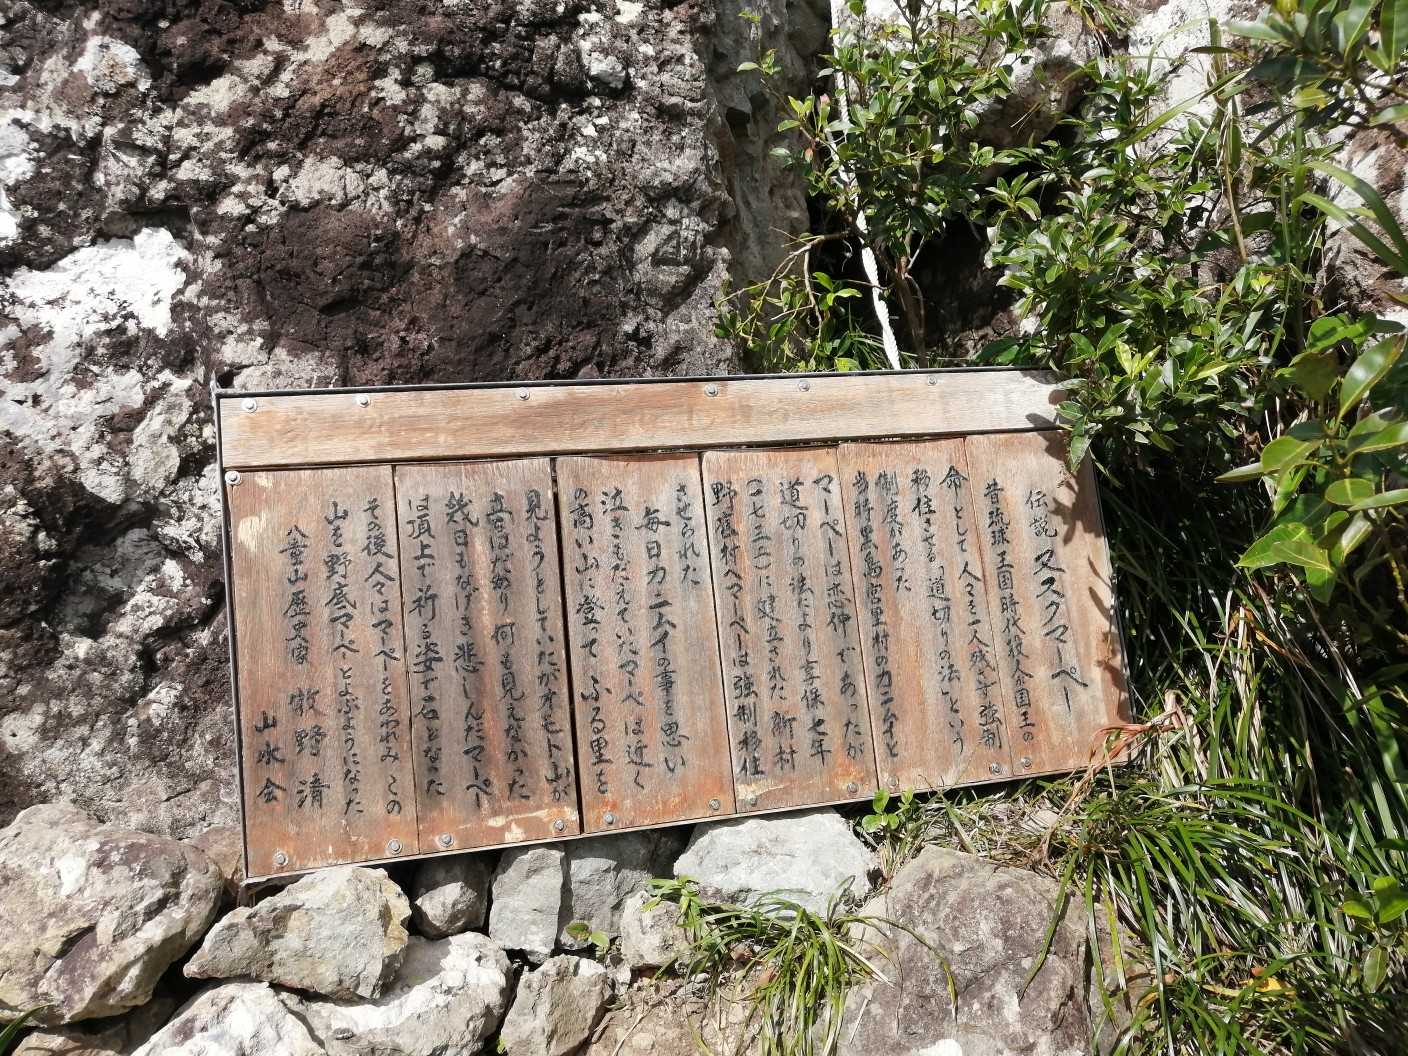 伝説 ヌスクマーペー
昔琉球王国時代役人が国王の
命として人々を一人残さず強制
移住させる「道切りの法」という
制度があった
当時黒島宮里村のカニムイと
マーペーは恋仲であったが
道切りの法により享保七年
(一七三二)に建立された新村
野底村へマーペーは強制移住
させられた
毎日カニムイの事を思い
泣きもだえていたマーペーは近く
の高い山に登って ふる里を
見ようとしていたがオモト山が
立ちはだかり 何も見えなかった
幾日もなげき悲しんだマーペー
は頂上で祈る姿で石となった
その後人々はマーペーをあわれみ この
山を野底マーペーとよぶようになった
八重山歴史家 牧野 清
山水会